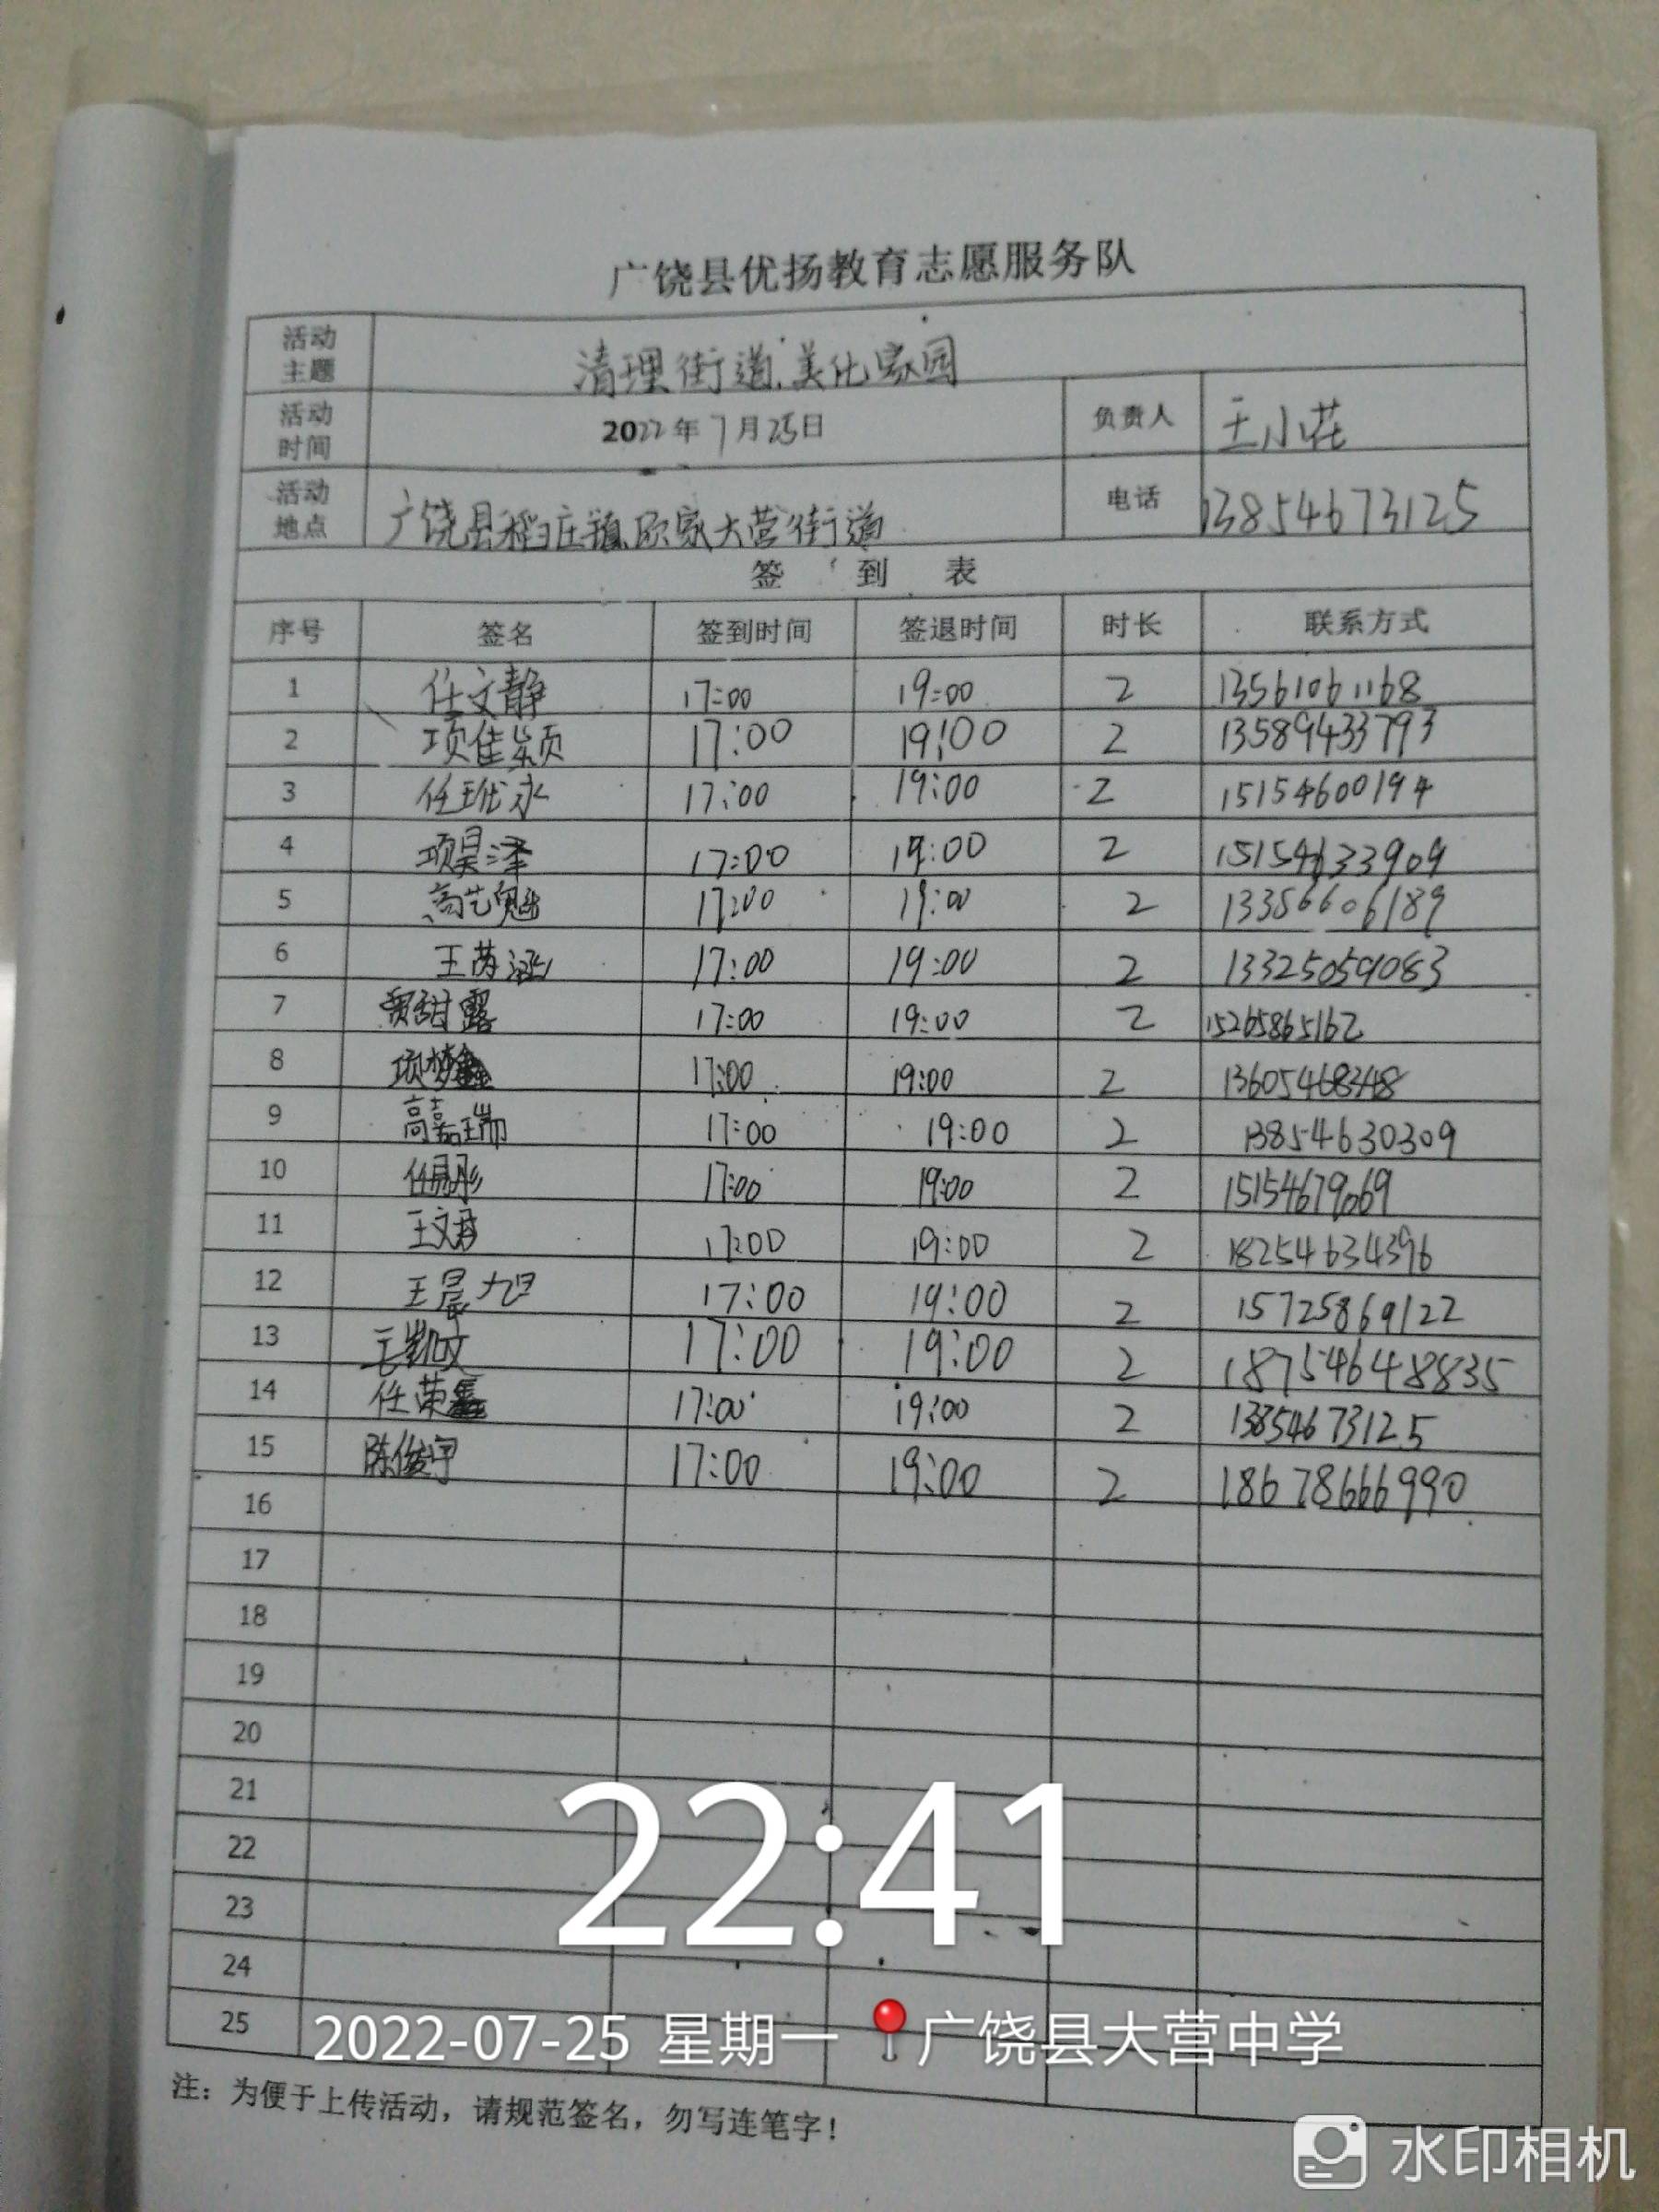 广饶县优扬教育志愿服务队
活动主题 清理街道,美化家园
活动时间 2022年7月25日 负责人 王小花
活动地点 广饶县稻庄镇欧家大营街道 电话 13854673125
签 到 表
序号 签名 签到时间 签退时间 时长 联系方式
1 任文静 17:00 19:00 2 13561061168
2 项佳颖 17:00 19:00 2 13589433793
3 任玳永 17:00 19:00 2 15154600194
4 项昊泽 17:00 19:00 2 15154633909
5 高艺魁 17:00 19:00 2 13356606189
6 王芮涵 17:00 19:00 2 133250591083
7 贾甜露 17:00 19:00 2 15265865162
8 项梦鑫 17:00 19:00 2 13605468348
9 高嘉瑞 17:00 19:00 2 13854630309
10 任 17:00 19:00 2 15154679069
11 王文君 17:00 19:00 2 18254634396
12 王晨旭 17:00 19:00 2 15725869122
13 王凯文 17:00 19:00 2 18754648835
14 任荣鑫 17:00 19:00 2 13854673125
15 陈俊宇 17:00 19:00 2 18678666990
16
17
18
19
20
21
22
23
24
25
22:41
2022-07-25 星期一 广饶县大营中学
注：为便于上传活动，请规范签名，勿写连笔字！
水印相机